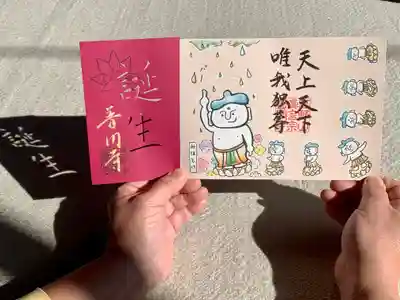 天上天下
唯我独尊
誕
生
普门寺
誕
生